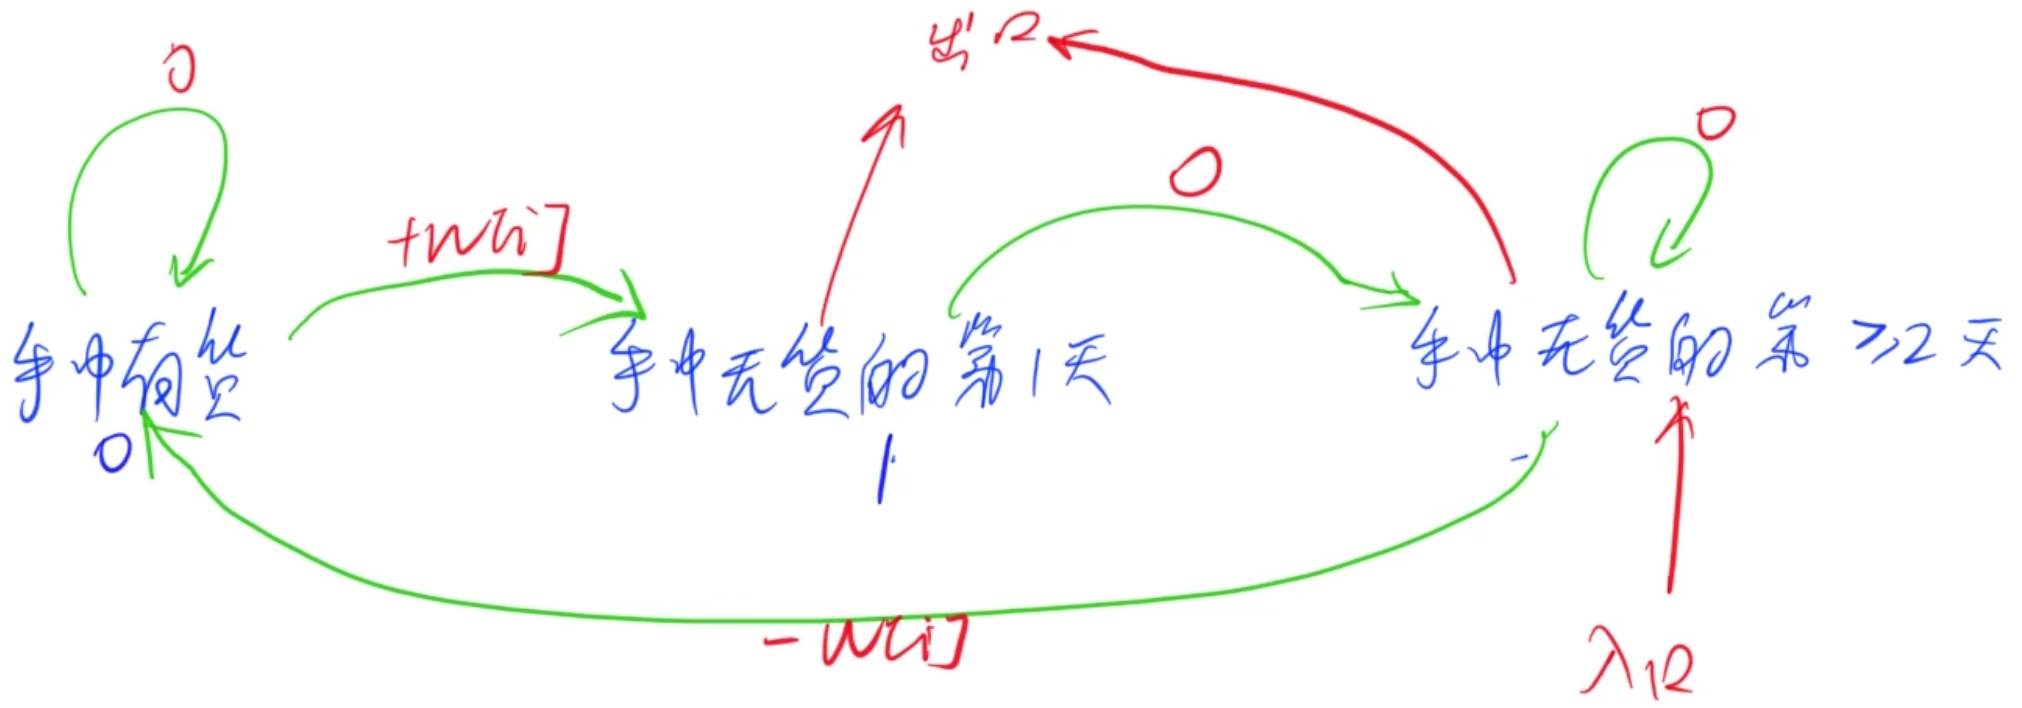 出口
0
0
0
+W[i]
手中有货
手中无货的第1天
手中无货的第≥2天
0
1
-W[i]
入口